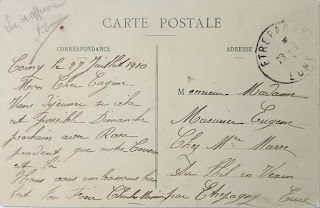 CARTE POSTALE
CORRESPONDANCE
ADRESSE
ETREPAGNY
EURE
Coiny le 27 Juillet 1910
Mon Cher Eugène
Viens déjeuner si cela
est possible Dimanche
prochain avec Rosa
pendant que notre Cousin
est là
Nous vous embrassons bien
Ton Frère Charles
Monsieur Madame
Masurier Eugène
Chez Mr Marre
Du Thil en Vexin
par Etrépagny Eure